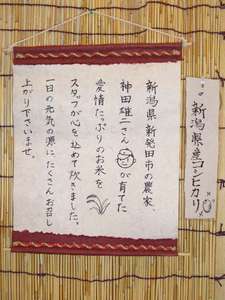 新潟県産コシヒカリ
新潟県 新発田市の農家
神田雄一さんが育てた
愛情たっぷりのお米を
スタッフが心を込めて炊きました。
一日の元気の源にたくさんお召し
上がり下さいませ。